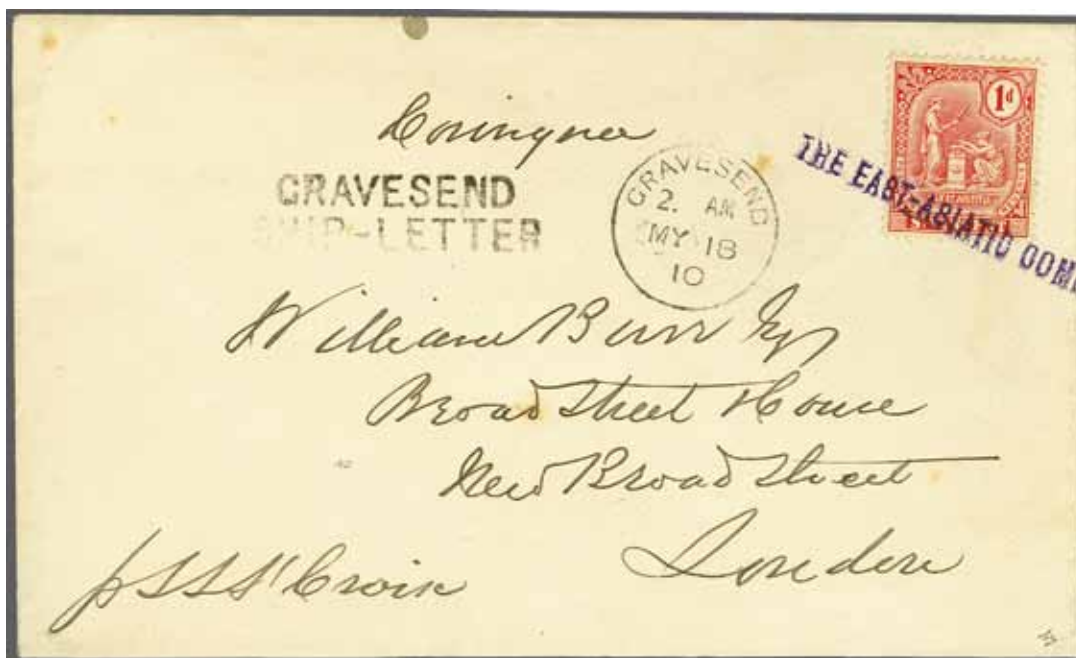 GRAVESEND
SHIP-LETTER
GRAVESEND
2. AM
MY 18
10
1d
THE EAST-ASIATIC COM
William Burr Esq
Broad Street House
New Broad Street
London
p SS St Croix